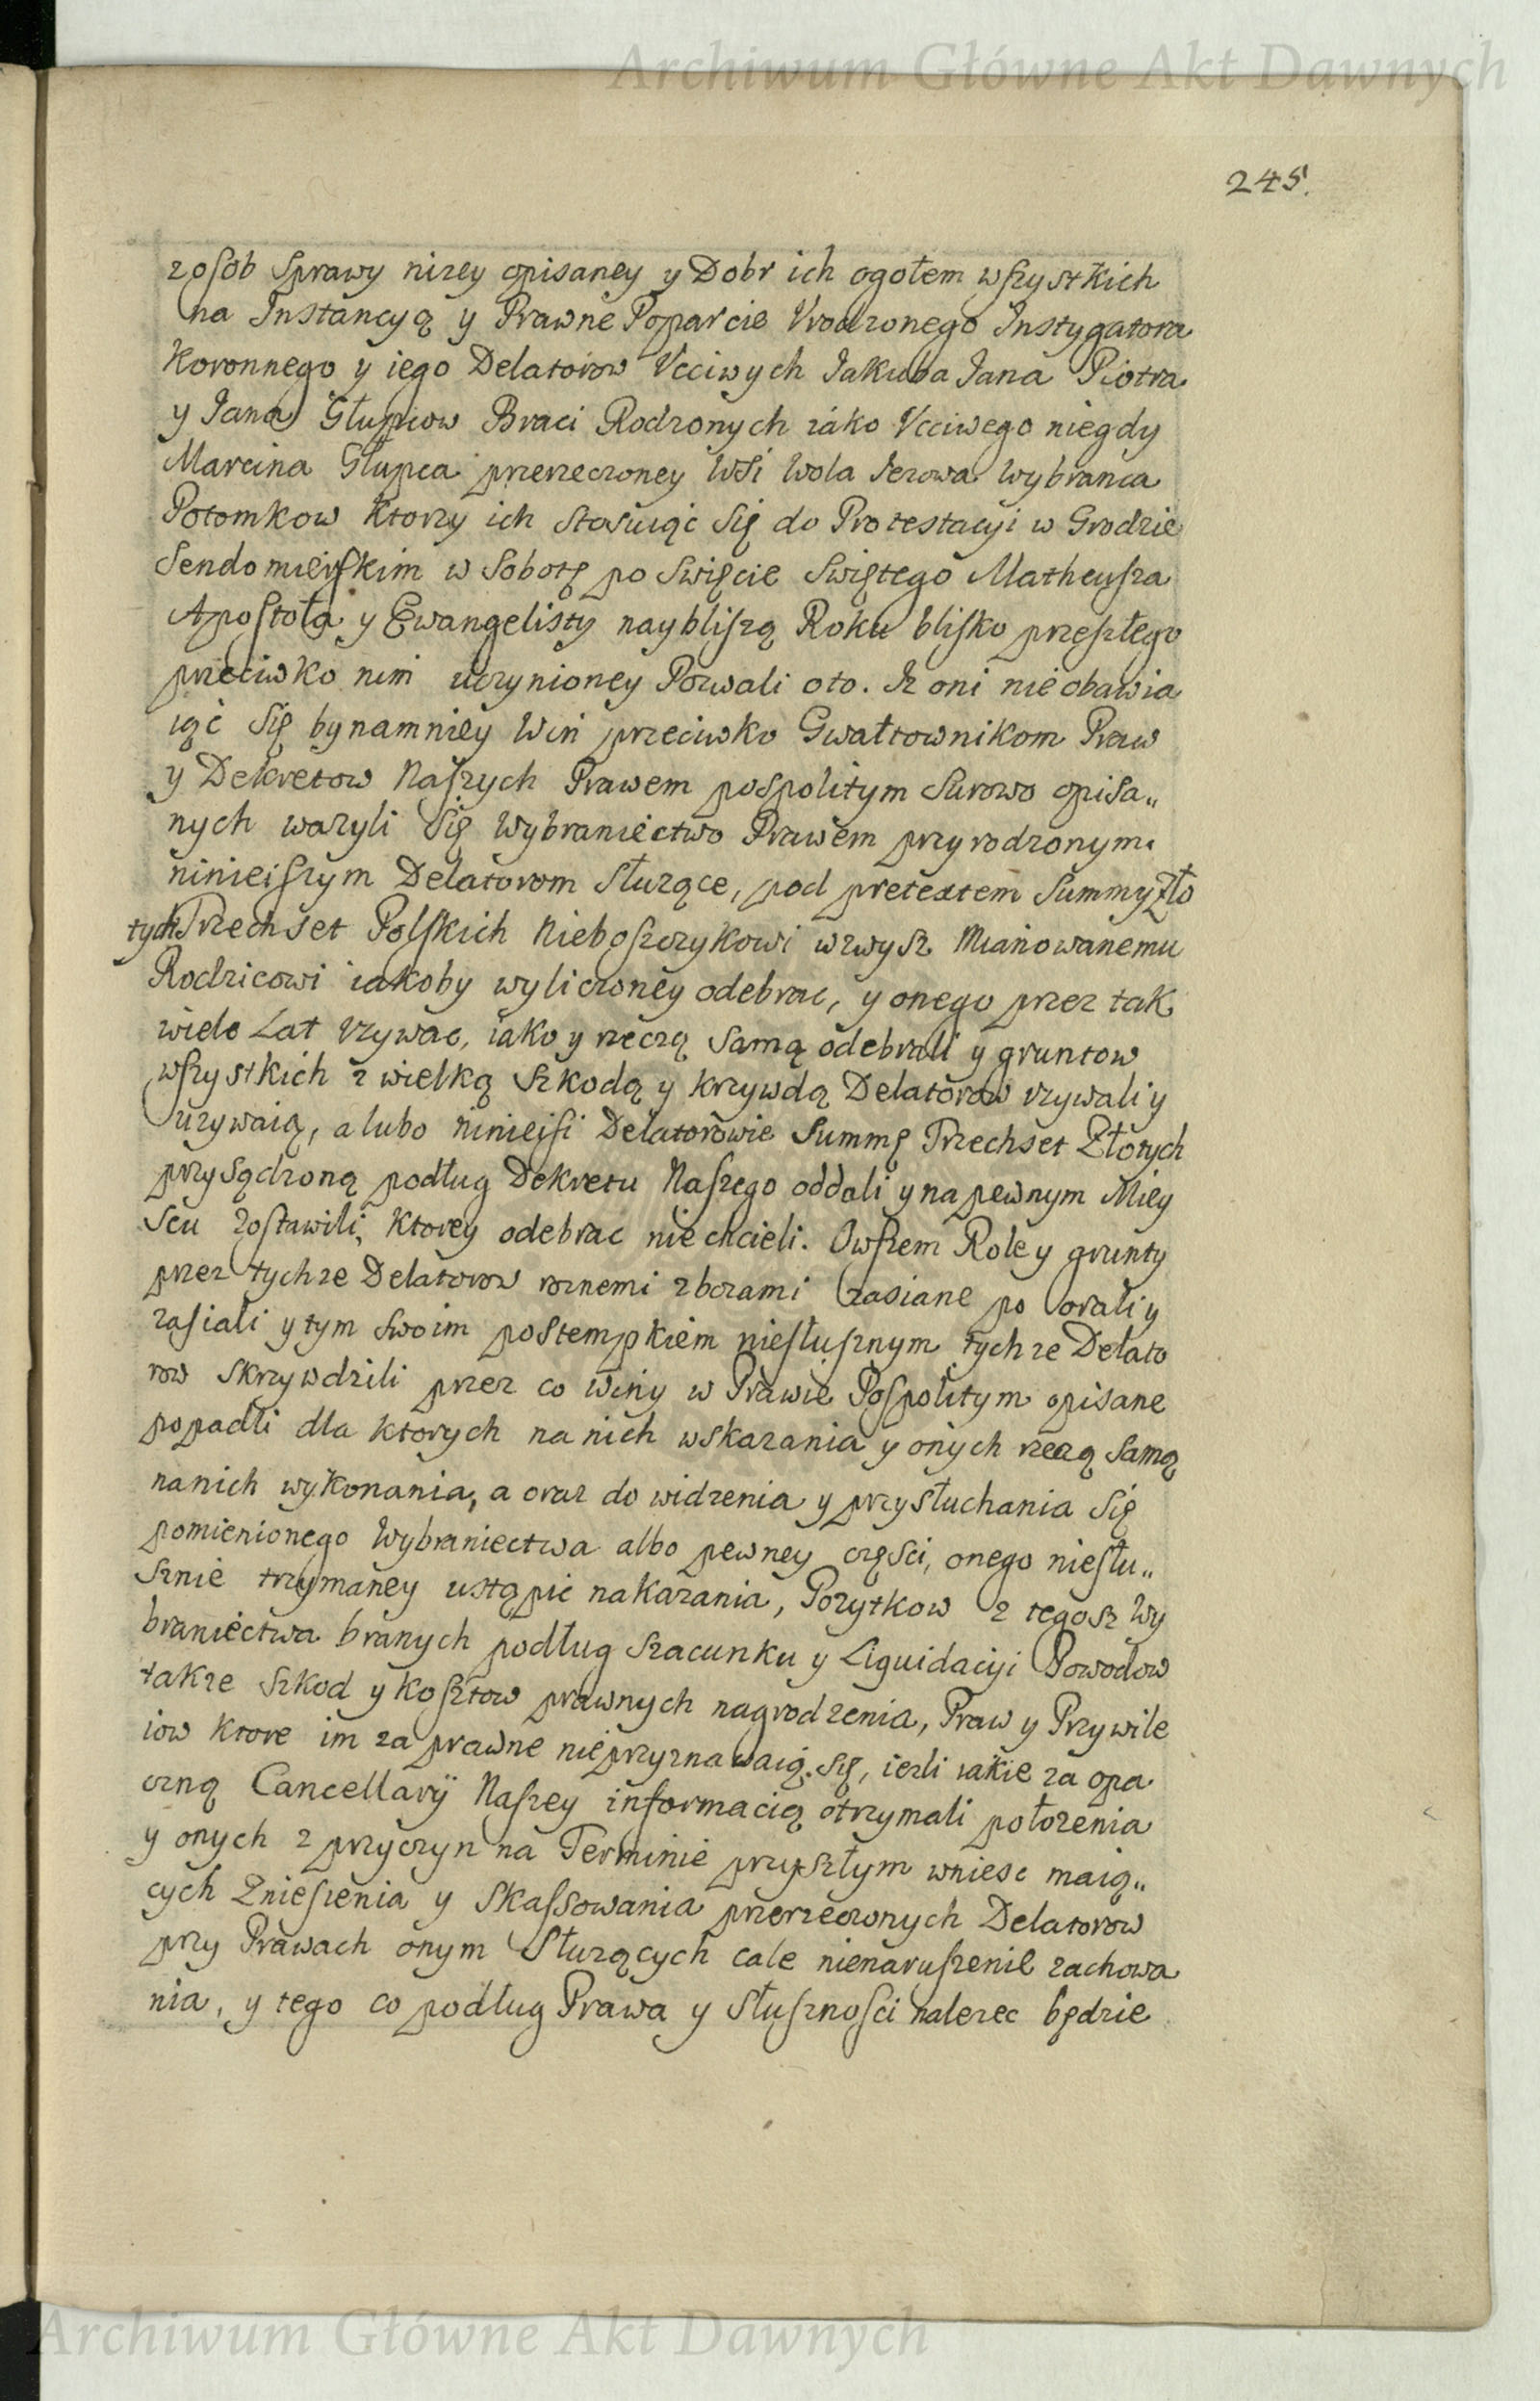 Archiwum Główne Akt Dawnych
245.
z osob Sprawy nizey opisaney y Dobr ich ogołem wszystkich
na Instancyą y Prawne Poparcie Vrodzonego Instygatora
Koronnego y iego Delatorow Vcciwych Jakuba Jana Piotra
y Jana Głupcow Braci Rodzonych iako Vcciwego niegdy
Marcina Głupca przerzeczoney Wsi Wola Jezowa Wybranca
Potomkow ktorzy ich stosuiąc się do Protestacyi w Grodzie
Sendomierskim w Sobotę po Swięcie Swiętego Matheusza
Apostoła y Ewangelisty naybliszą Roku blisko przeszłego
przeciwko nim uczynioney Pozwali oto. Iz oni nie obawia
iąc się bynamniey Win przeciwko Gwałtownikom Praw
y Dekretow Naszych Prawem pospolitym Surowo opisa„
nych wazyli się Wybraniectwo Prawem przyrodzonym
ninieiszym Delatorom Słuzące, pod pretextem Summy Zło
tych Trzechset Polskich Nieboszczykowi wzwysz Mianowanemu
Rodzicowi iakoby wyliczoney odebrac, y onego przez tak
wiele Lat Vzywac, iako y rzeczą Samą odebrali y gruntow
wszystkich z wielką Szkodą y krzywdą Delatorow vzywali y
uzywaią, alubo Ninieisi Delatorowie Summę Trzechset Złotych
przysądzoną podług Dekretu Naszego oddali y na pewnym Miey
scu zostawili, ktorey odebrac nie chcieli. Owszem Role y grunty
przez tychze Delatorow roznemi zbozami zasiane po orali y
zasiali y tym swoim postempkiem niesłusznym tychze Delato
row skrzywdzili przez co Winy w Prawie Pospolitym opisane
popadli dla ktorych na nich wskazania y onych rzeczą Samą
nanich wykonania, a oraz do widzenia y przysłuchania się
pomienionego Wybraniectwa albo pewney częsci, onego niesłu„
sznie trzymaney ustąpic nakazania, Pozytkow z tegosz Wy
braniectwa branych podług Szacunku y Liquidacyi Powodow
takze Szkod y kosztow prawnych nagrodzenia, Praw y Przywile
iow ktore im za prawne nieprzyznawaią się, iezli iakie za opa
czną Cancellaryi Naszey informacią otrzymali połozenia
y onych z przyczyn na Terminie przyszłym wniesc maią„
cych Zniesienia y Skassowania przerzeczonych Delatorow
przy Prawach onym Słuzących cale nienaruszenie zachowa
nia, y tego co podług Prawa y Słusznosci nalezec będzie
Archiwum Główne Akt Dawnych